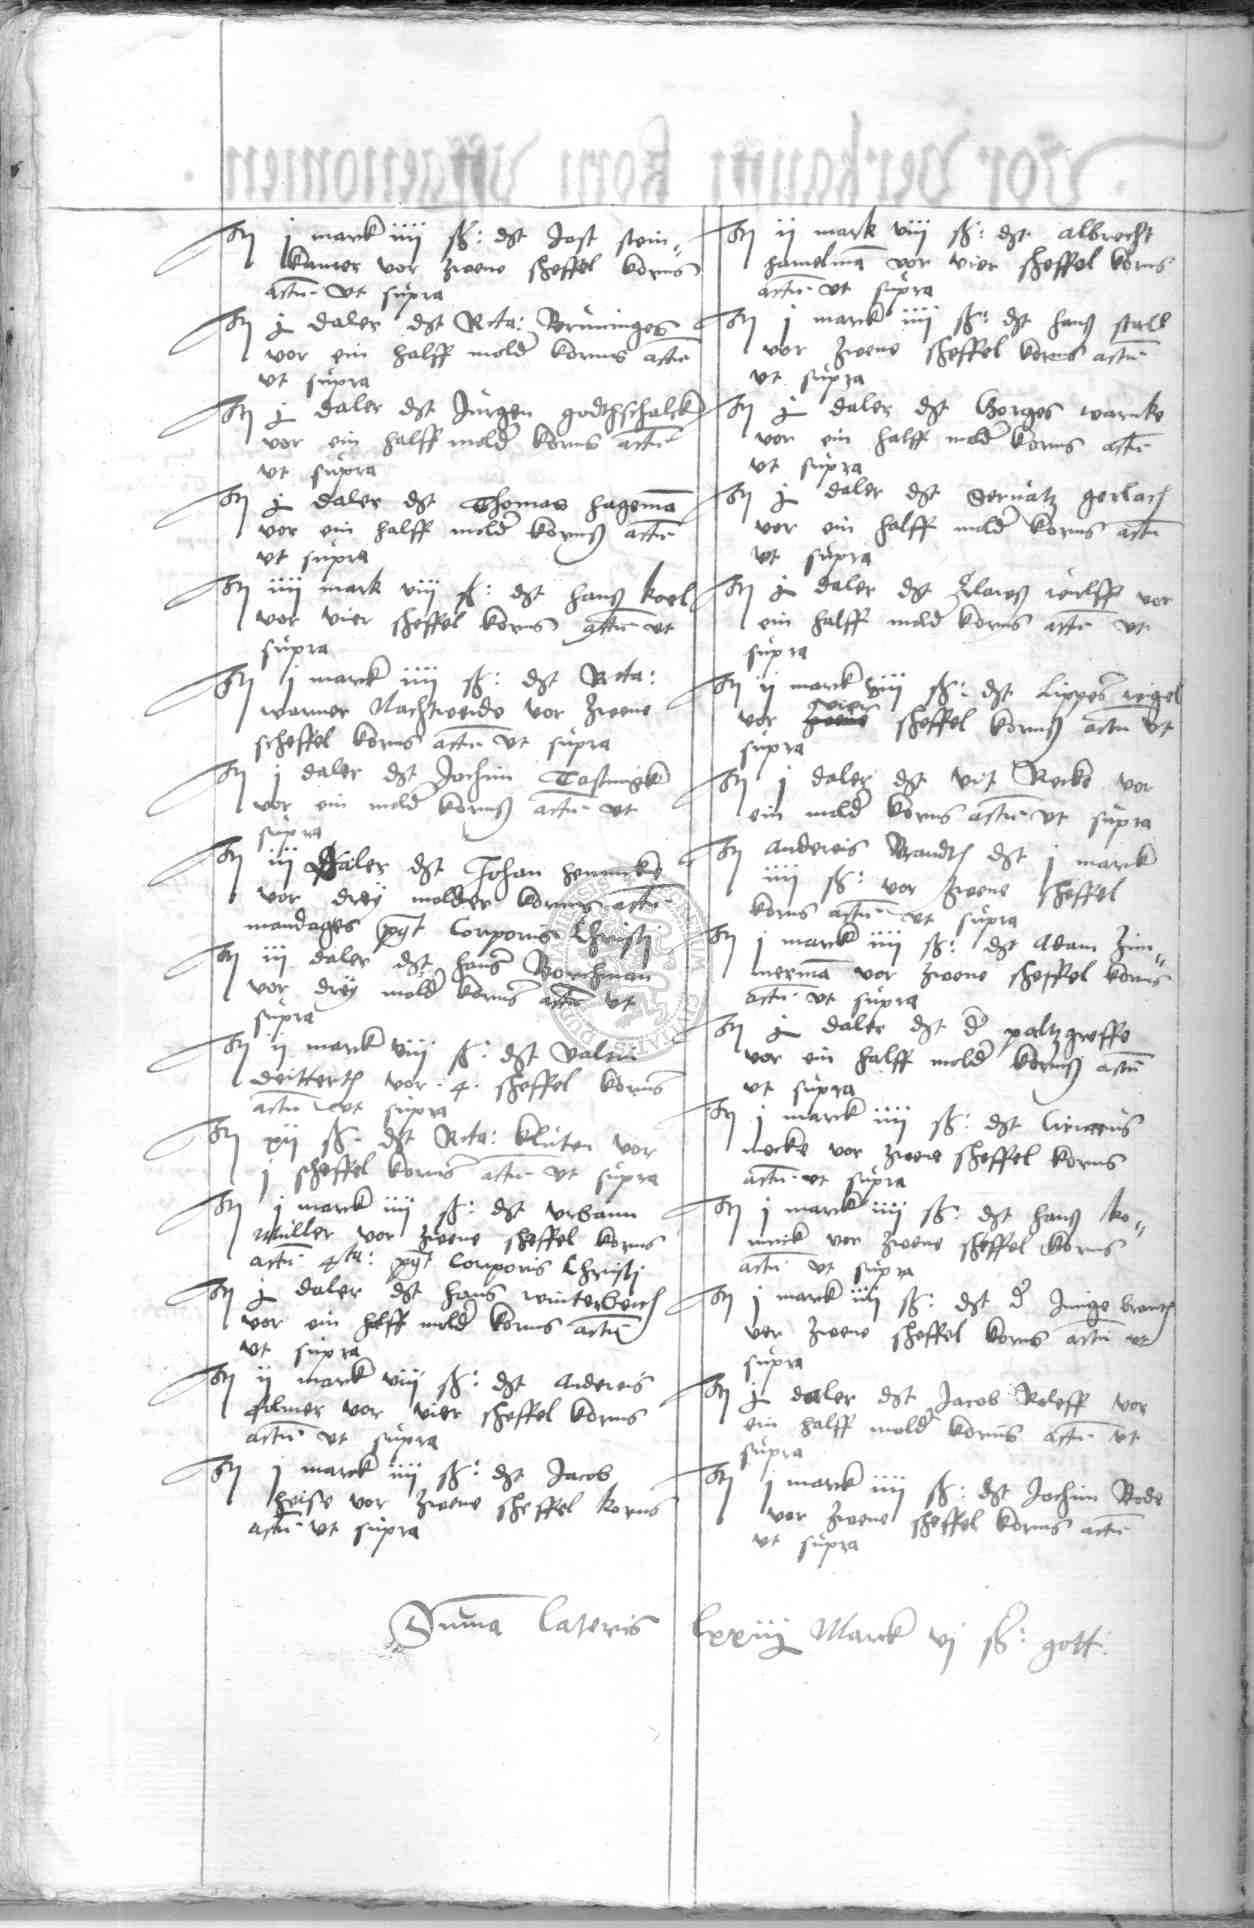 It j marck iiij ß: dt Jost stein„
kamer vor zwene scheffel korns
actū ut supra
It ½ daler dt Rta: Brüninges
vor ein halff mold korns actū
ut supra
It ½ daler dt Jürgen godtschalck
vor ein halff mold korns actū
ut supra
It ½ daler dt Thomas hagemā
vor ein halff mold korns actū
ut supra
It iiij mark viij ß: dt hans koel
vor vier scheffel korns actū ut
supra
It j marck iiij ß: dt Rta:
warner Nachtweide vor zwene
scheffel korns actū ut supra
It j daler dt Jochim
vor ein mold korns actū ut
supra
It iij daler dt Johan hennicke
vor drey molder korns actū
mandages pt Corporis Christi
It iij daler dt hans Borchman
vor drey mold korns actū ut
supra
It ij marck viij ß: dt Valtin
deitterch vor .4. scheffel korns
actū ut supra
It xij ß. dt Rta: klüten vor
j scheffel korns actū ut supra
It j marck iiij ß: dt urbann
Müller vor zwene scheffel korns
actū 4ta: pt Corporis Christi
It ½ daler dt hans winterberch
vor ein halff mold korns actū
ut supra
It ij marck viij ß: dt Andereis
folmer vor vier scheffel korns
actū ut supra
It j marck iiij ß: dt Jacob
heise vor zwene scheffel korns
actū ut supra
It ij mark viij ß: dt albrecht
hamelmā vor vier scheffel korns
actū ut supra
It j marck iiij ß: dt hans stall
vor zwene scheffel korns actū
ut supra
It ½ daler dt Gorges warneke
vor ein halff mold korns actū
ut supra
It ½ daler dt Servatz gerlach
vor ein halff mold korns actū
ut supra
It ½ daler dt Clawes vor
ein halff mold korns actū ut
supra
It ij marck viij ß: dt Lippes
vier
vor zwene scheffel korns actū ut
supra
It j daler dt vit Recke vor
ein mold korns actū ut supra
It Andereis Brandt dt j marck
iiij ß: vor zwene scheffel
korns actū ut supra
It j marck iiij ß: dt Adam Zim„
mermā vor zwene scheffel korns
actū ut supra
It ½ daler dt d paltzgreffe
vor ein halff mold korns actū
ut supra
It j marck iiij ß: dt Ciriacus
mecke vor zwene scheffel korns
actū ut supra
It j marck iiij ß: dt hans ko„
nnick vor zwene scheffel korns
actū ut supra
It j marck iiij ß: dt d Junge brant
vor zwene scheffel korns actū ut
supra
It ½ daler dt Jacob Roleff vor
ein halff mold korns actū ut
supra
It j marck iiij ß: dt Jochim Rode
vor zwene scheffel korns actū
ut supra
Suma Lateris Marck vj ß: gott: